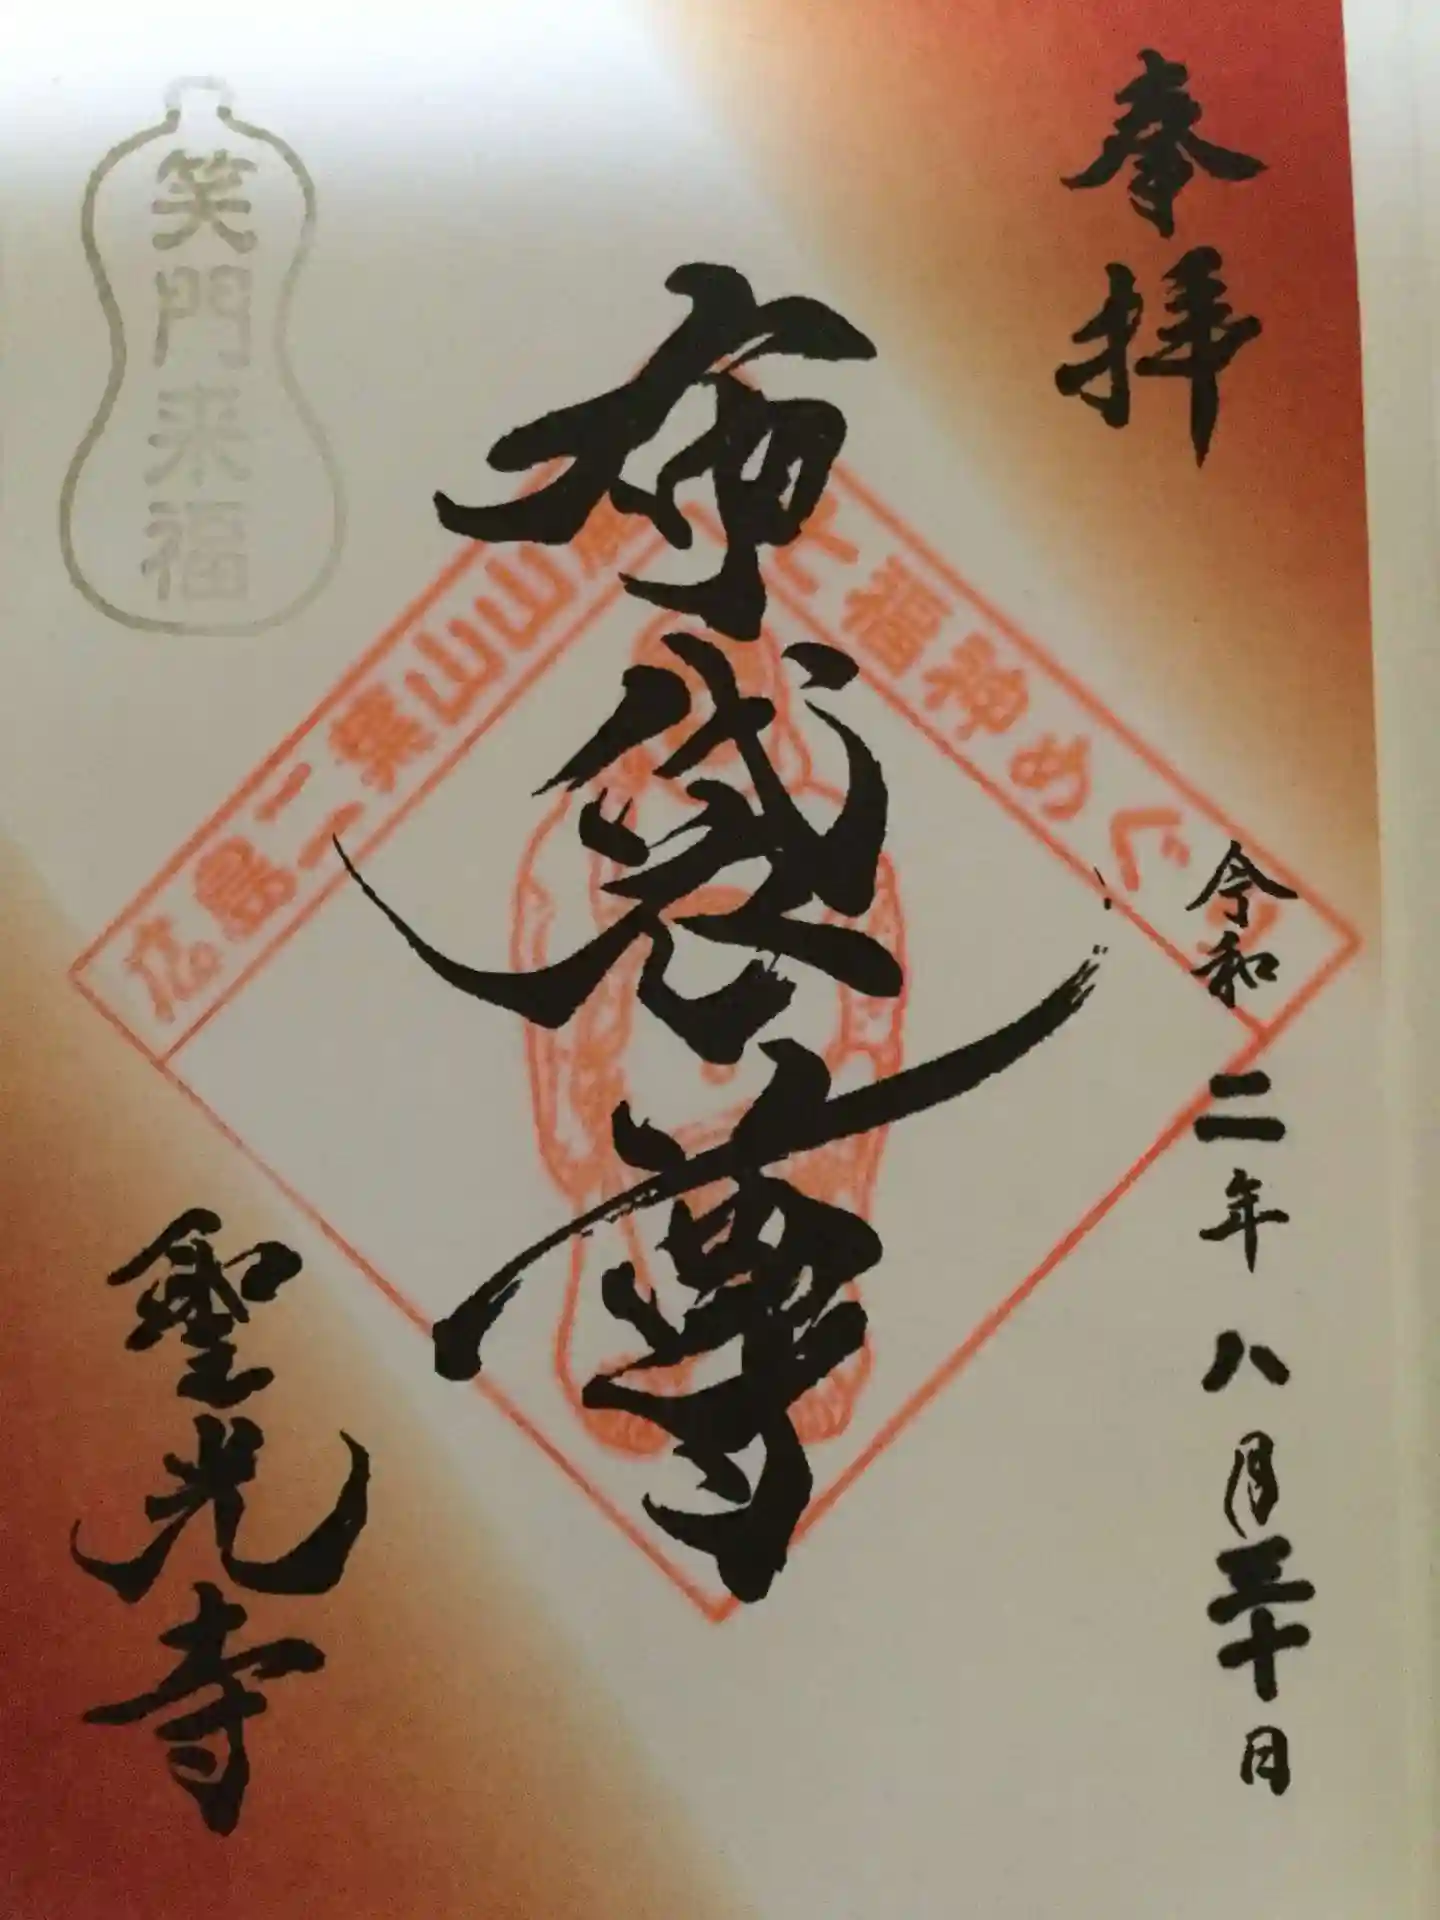 奉拝
令和二年八月三十日
布袋尊
広島二葉山山麓七福神めぐり
笑門来福
聖光寺